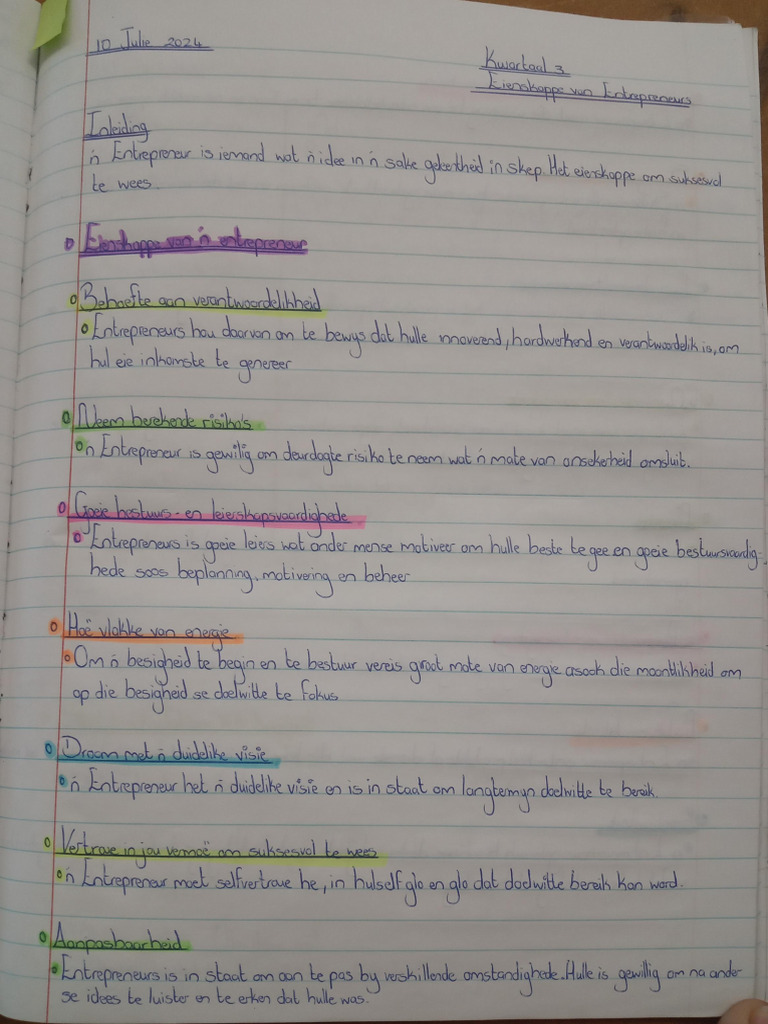 10 Julie 2024
Kwartaal 3
Eienskappe van Entrepreneurs
Inleiding
'n Entrepreneur is iemand wat 'n idee in 'n sake geleentheid in skep. Het eienskappe om suksesvol
te wees.
Eienskappe van 'n entrepreneur
Behoefte aan verantwoordelikheid
Entrepreneurs hou daarvan om te bewys dat hulle innoverend, hardwerkend en verantwoordelik is, om
hul eie inkomste te genereer
Neem berekende risiko's
'n Entrepreneur is gewillig om deurdagte risiko te neem wat 'n mate van onsekerheid omsluit.
Goeie bestuurs- en leierskapsvaardighede
Entrepreneurs is goeie leiers wat ander mense motiveer om hulle beste te gee en goeie bestuursvaardig-
hede soos beplanning, motivering en beheer
Hoë vlakke van energie
Om 'n besigheid te begin en te bestuur vereis groot mate van energie asook die moontlikheid om
op die besigheid se doelwitte te fokus
Droom met 'n duidelike visie
'n Entrepreneur het 'n duidelike visie en is in staat om langtermyn doelwitte te bereik.
Vertroue in jou vermoë om suksesvol te wees
'n Entrepreneur moet selfvertroue hê, in hulself glo en glo dat doelwitte bereik kan word.
Aanpasbaarheid
Entrepreneurs is in staat om aan te pas by verskillende omstandighede. Hulle is gewillig om na ander
se idees te luister en te erken dat hulle was.